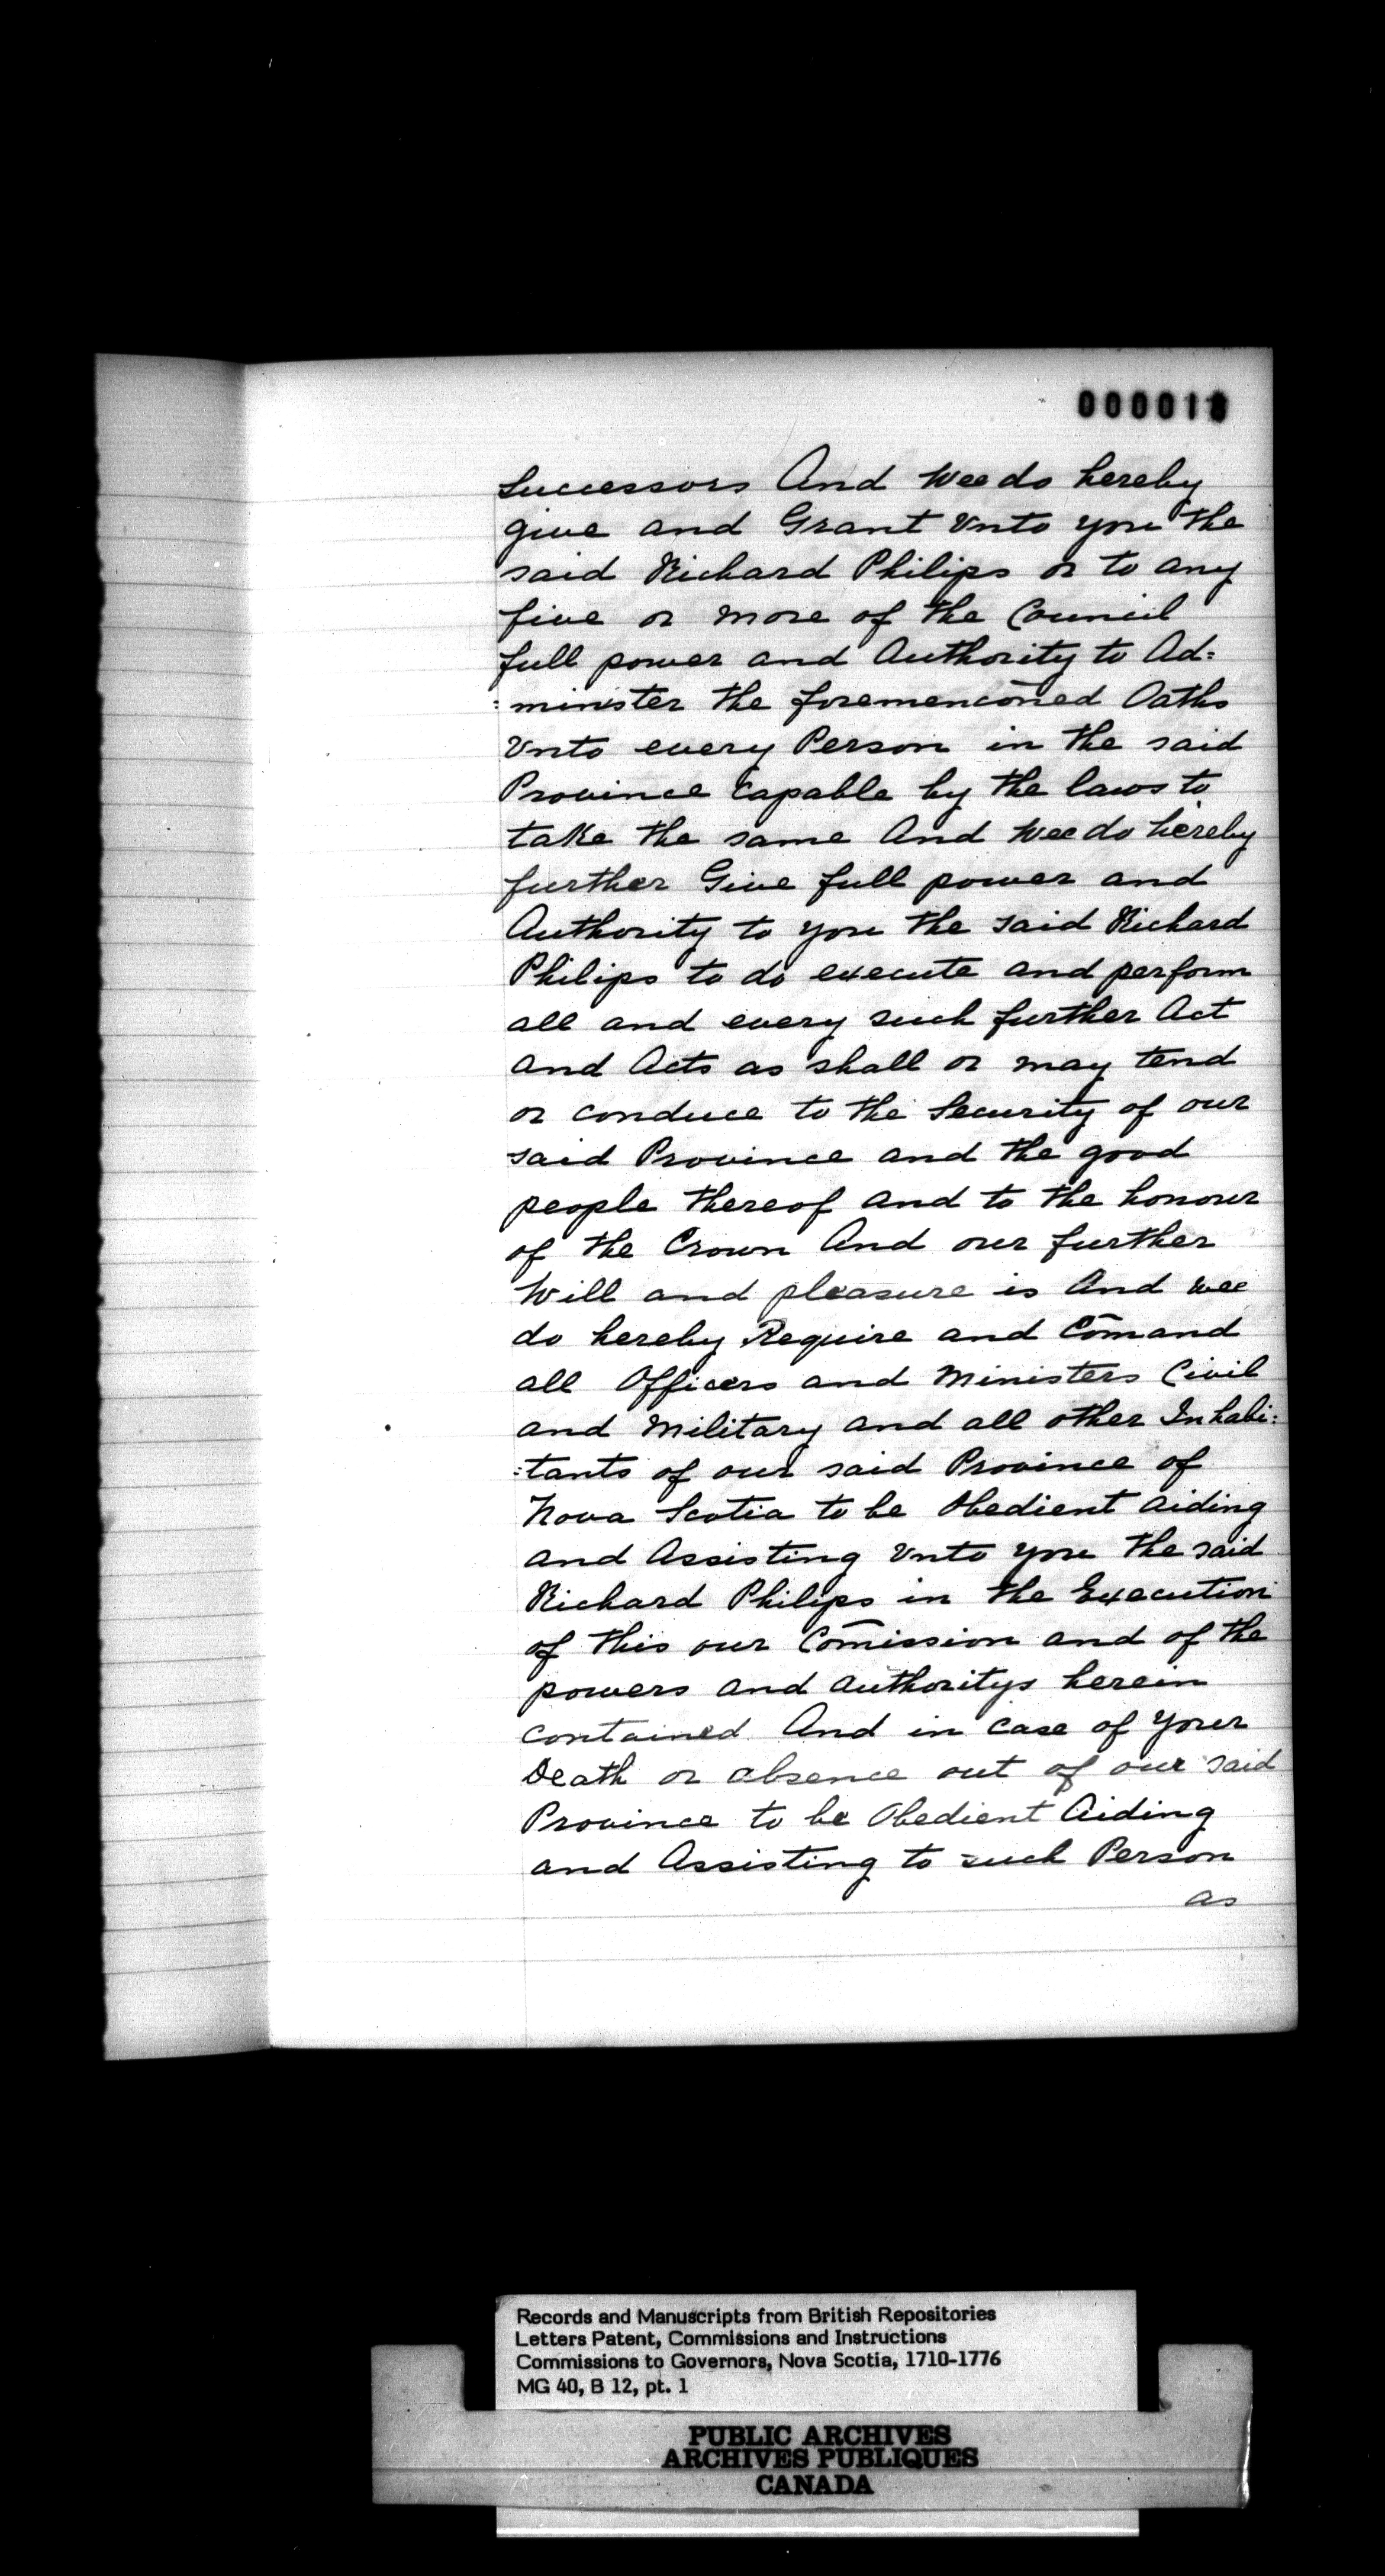 000018
Successors And Wee do hereby
give and Grant Vnto you the
said Richard Philips or to any
five or more of the Council
full power and Authority to Ad=
=minister the foremenc̄oned Oaths
Vnto every Person in the said
Province Capable by the laws to
take the same And Wee do hereby
further Give full power and
Authority to you the said Richard
Philips to do execute and perform
all and every such further Act
and Acts as shall or may tend
or conduce to the Security of our
said Province and the good
people thereof and to the honour
of the Crown And our further
Will and pleasure is And wee
do hereby Require and Com̄and
all Officers and Ministers Civil
and Military and all other Inhabi=
=tants of our said Province of
Nova Scotia to be Obedient aiding
and Assisting Vnto you the said
Richard Philips in the Execution
of this our Com̄ission and of the
powers and authoritys herein
contained And in case of your
Death or absence out of our said
Province to be Obedient Aiding
and Assisting to such Person
as
Records and Manuscripts from British Repositories
Letters Patent, Commissions and Instructions
Commissions to Governors, Nova Scotia, 1710-1776
MG 40, B 12, pt. 1
PUBLIC ARCHIVES
ARCHIVES PUBLIQUES
CANADA